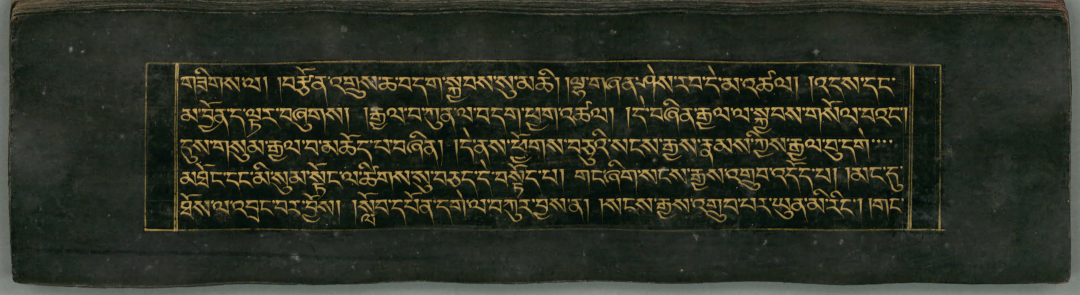 གཟིགས་ལ། །བརྩོན་འགྲུས་ཆ་བདག་སྐྱབས་སུ་མཆི། །ལྷ་གཞན་ཤེས་རབ་དེ་མ་འཚལ། །འདས་དང་
མ་བྱོན་ད་ལྟར་བཞུགས། །རྒྱལ་བ་ཀུན་ལ་བདག་ཕྱག་འཚལ། །དེ་བཞིན་རྒྱལ་ལ་སྐྱབས་གསོལ་བའང་།
དུས་གསུམ་རྒྱལ་བ་མཆོད་པ་བཞིན། །དེ་ནས་ཕྱོགས་བཅུའི་སངས་རྒྱས་རྣམས་ཀྱིས་རྒྱལ་བུ་དགེ་
མཐོང་དང་མི་སུམ་སྟོང་ལ་ཚིགས་སུ་བཅད་དེ་བསྟོད་པ། གང་ཞིག་སངས་རྒྱས་འགྲུབ་འདོད་པ། །མང་དུ་
ཐོས་ལ་འདྲང་བར་གྱོས། །སློབ་དཔོན་དགེ་ལ་བཀུར་བྱས་ན། །སངས་རྒྱས་འགྲུབ་པར་ཡུན་མི་རིང་། །གང་